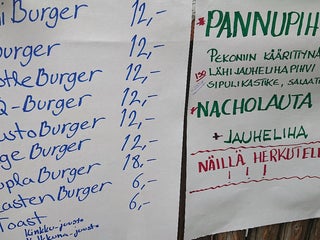 Burger 12,-
burger 12,-
Burger 12,-
Q-Burger 12,-
usto Burger 12,-
ge Burger 12,-
upla Burger 18,-
asten Burger 6,-
Toast 6,-
kinkku-juusto
kalkkuna-juusto
*PANNUPIH
PEKONIIN KÄÄRITTYNÄ
130 LÄHIJAUHELIHAPIHVI
SIPULIKASTIKE, SALAAT
*NACHOLAUTA
+ JAUHELIHA
NÄILLÄ HERKUTEL
! ! !